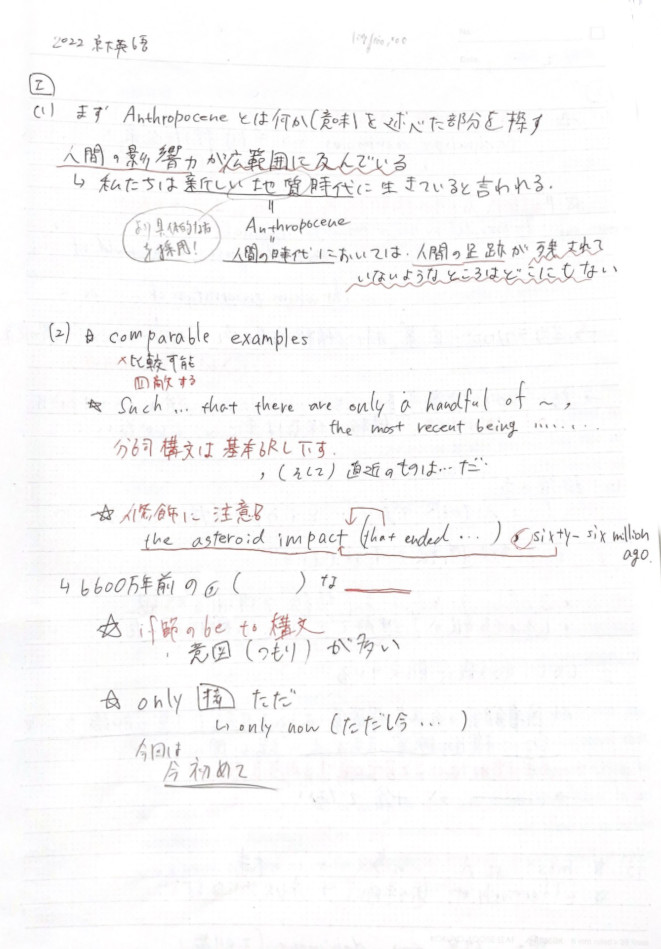 2022 京大英語
I
(1) まず Anthropocene とは何か(意味)を述べた部分を探す
人間の影響力が広範囲に及んでいる
↳ 私たちは新しい地質時代に生きていると言われる.
॥
Anthropocene
より具体的な方を採用!
॥
人間の時代においては、人間の足跡が残されて
いないようなところはどこにもない
(2) ☆ comparable examples
×比較可能
匹敵する
☆ Such … that there are only a handful of ~,
the most recent being ………
分詞構文は基本訳し下す.
, (そして) 直近のものは…だ.
☆ 修飾に注意
the asteroid impact (that ended …) , sixty-six million
ago.
↳ 6600万年前の ( ) な
☆ if節の be to 構文
意図 (つもり) が多い
☆ only 接 ただ
↳ only now (ただし今 …)
今回は
今初めて